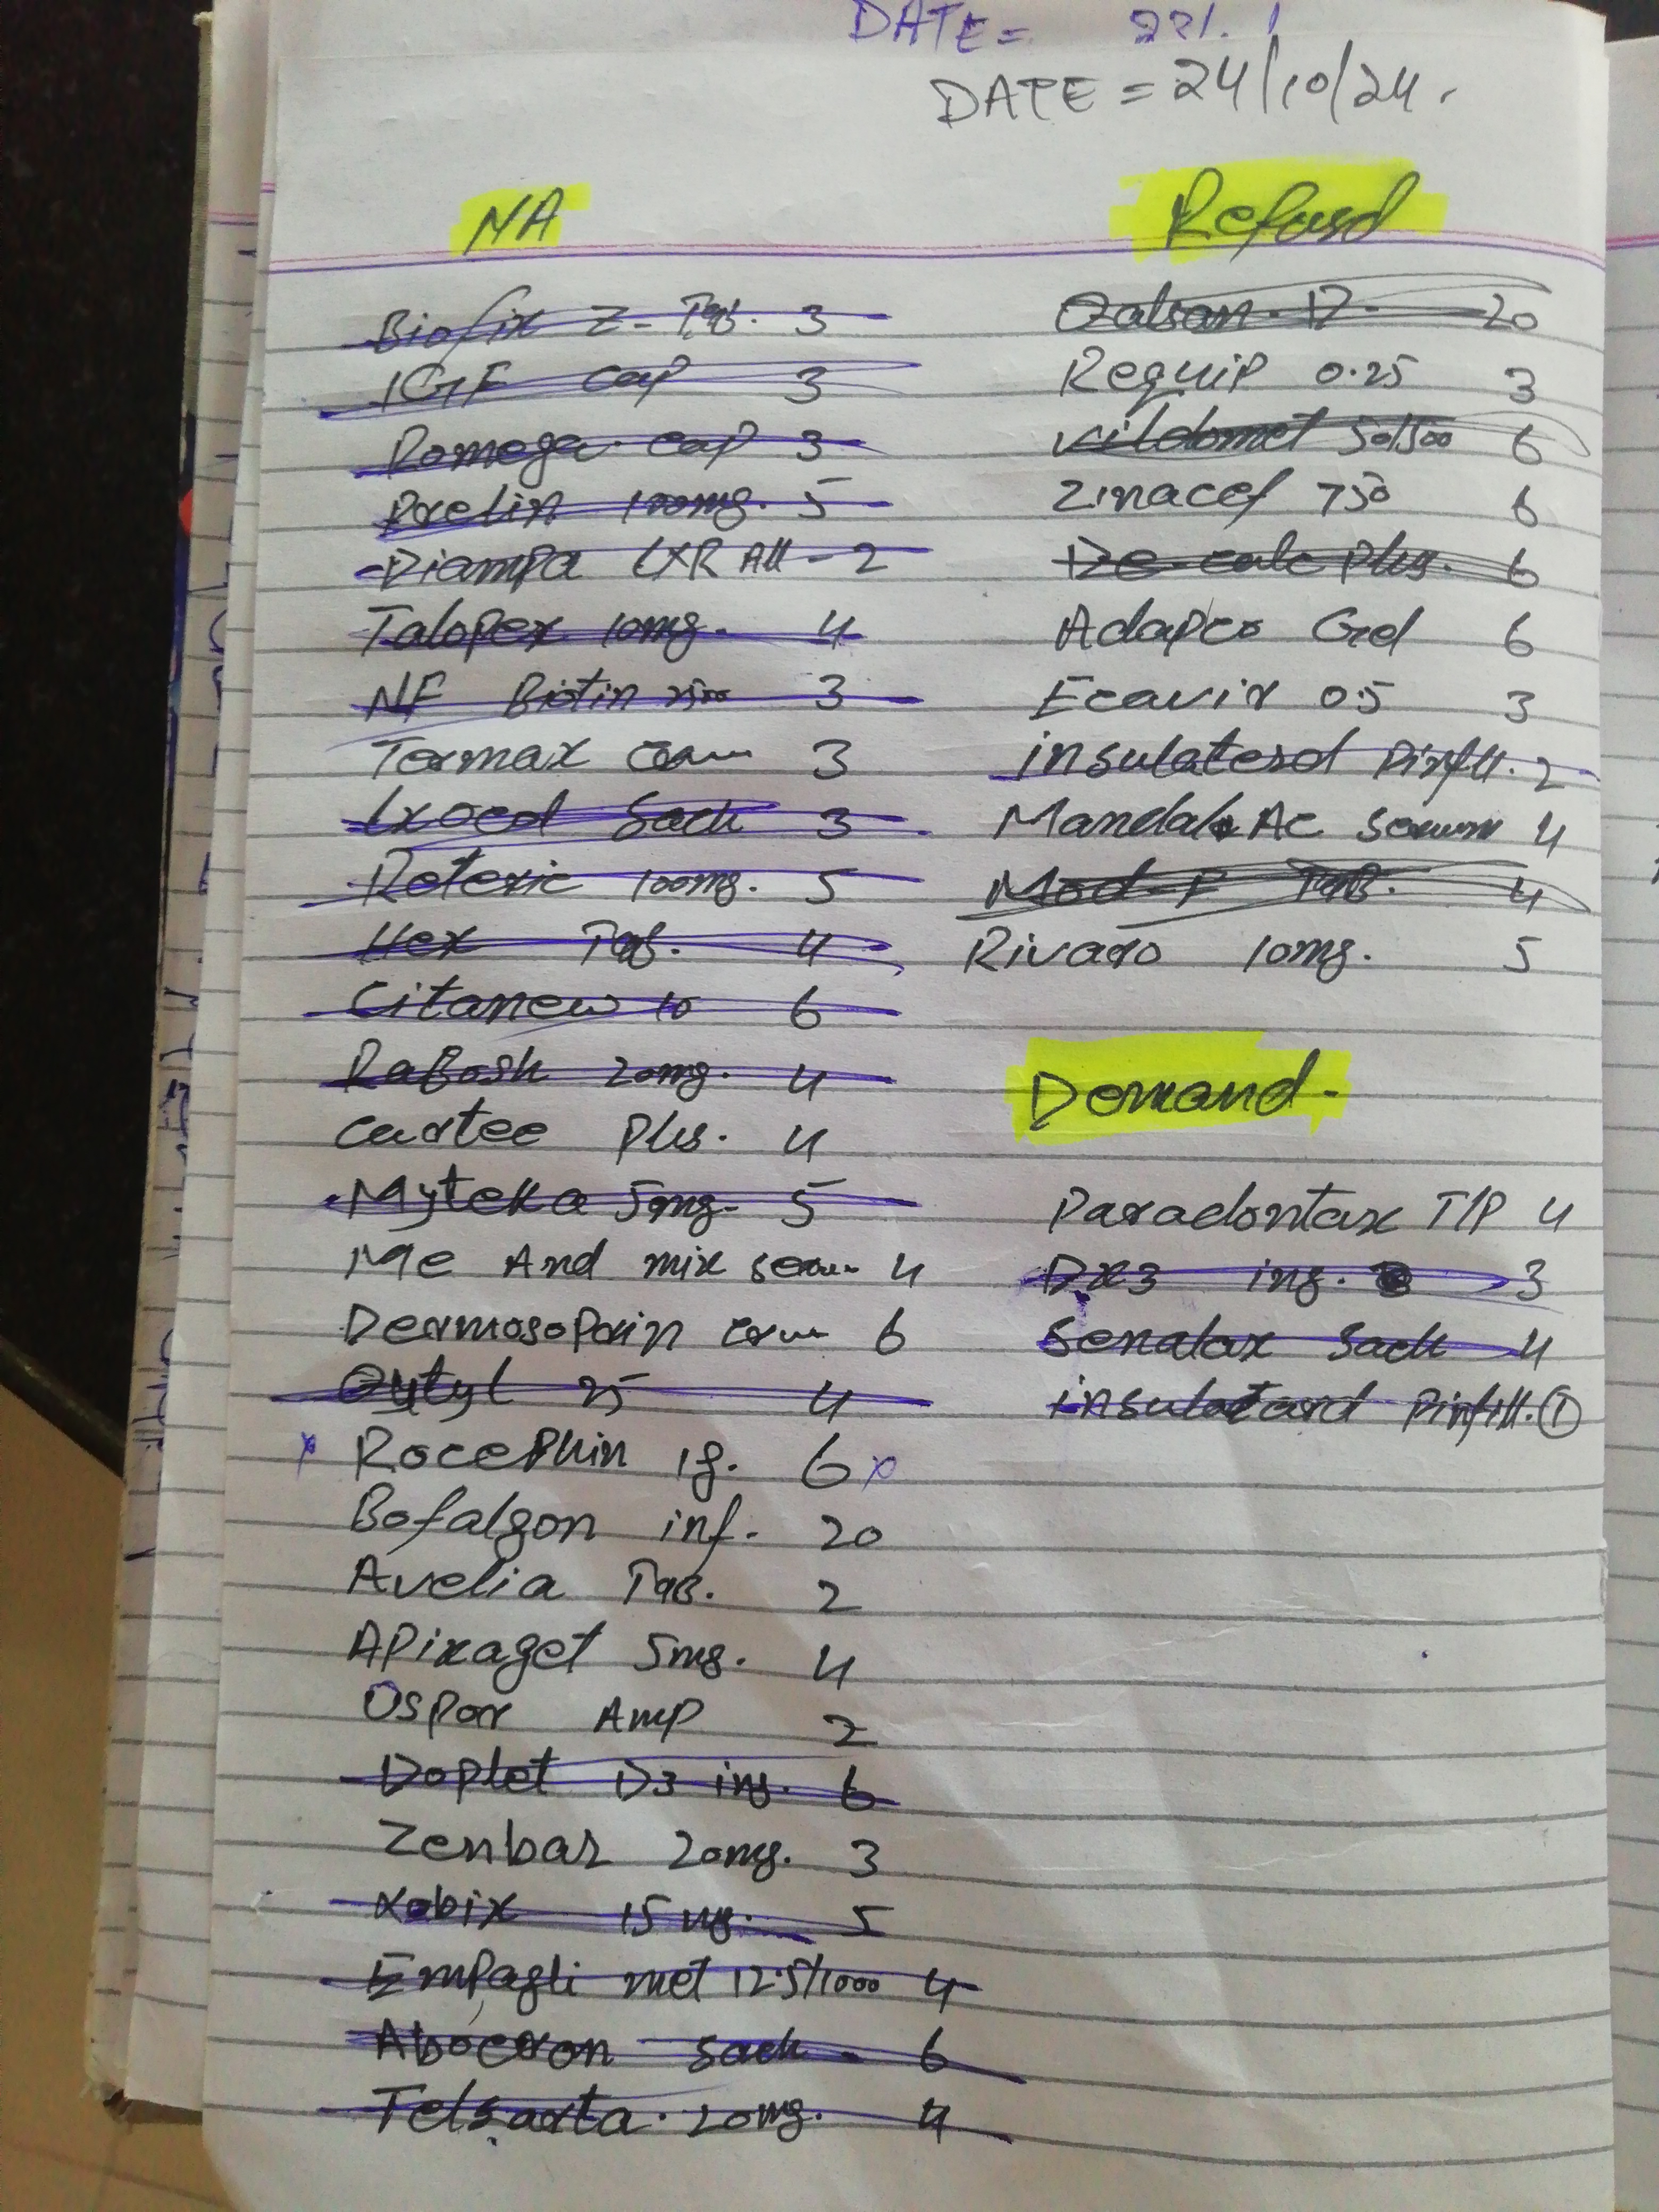 DATE =
DATE = 24/10/24.
NA
Biofix Z- Tab. 3
IGF cap 3
Romega cap 3
Prelin 100mg. 5
Diampa LXR All - 2
Talopex 10mg. 4
NF Biotin 2500 3
Termax 3
Sach 3
100mg. 5
Hex Tab. 4
Citanew 10 6
20mg. 4
Cartee Plus. 4
Myteka 5mg. 5
Me And mix 4
6
25 4
x Rocephin 1g. 6 x
Bofalgon inf. 20
Avelia Tab. 2
APixaget 5mg. 4
Ospor Amp 2
Doplet D3 inj. 6
Zenbar 20mg. 3
Xobix 15mg. 5
Empagli met 12.5/1000 4
Sach. 6
Telsarta. 20mg. 4
Refusd
Qalsan. D. 20
Requip 0.25 3
Vildomet 50/500 6
Zinacef 750 6
De-calc Plus. 6
Adapco Gel 6
Ecavir 0.5 3
2
Mandal Ac serum 4
Tab. 4
Rivaro 10mg. 5
Demand-
Paradontax T/P 4
DX3 inj. 3
Senalax Sach 4
insulatard Pinfill. 1